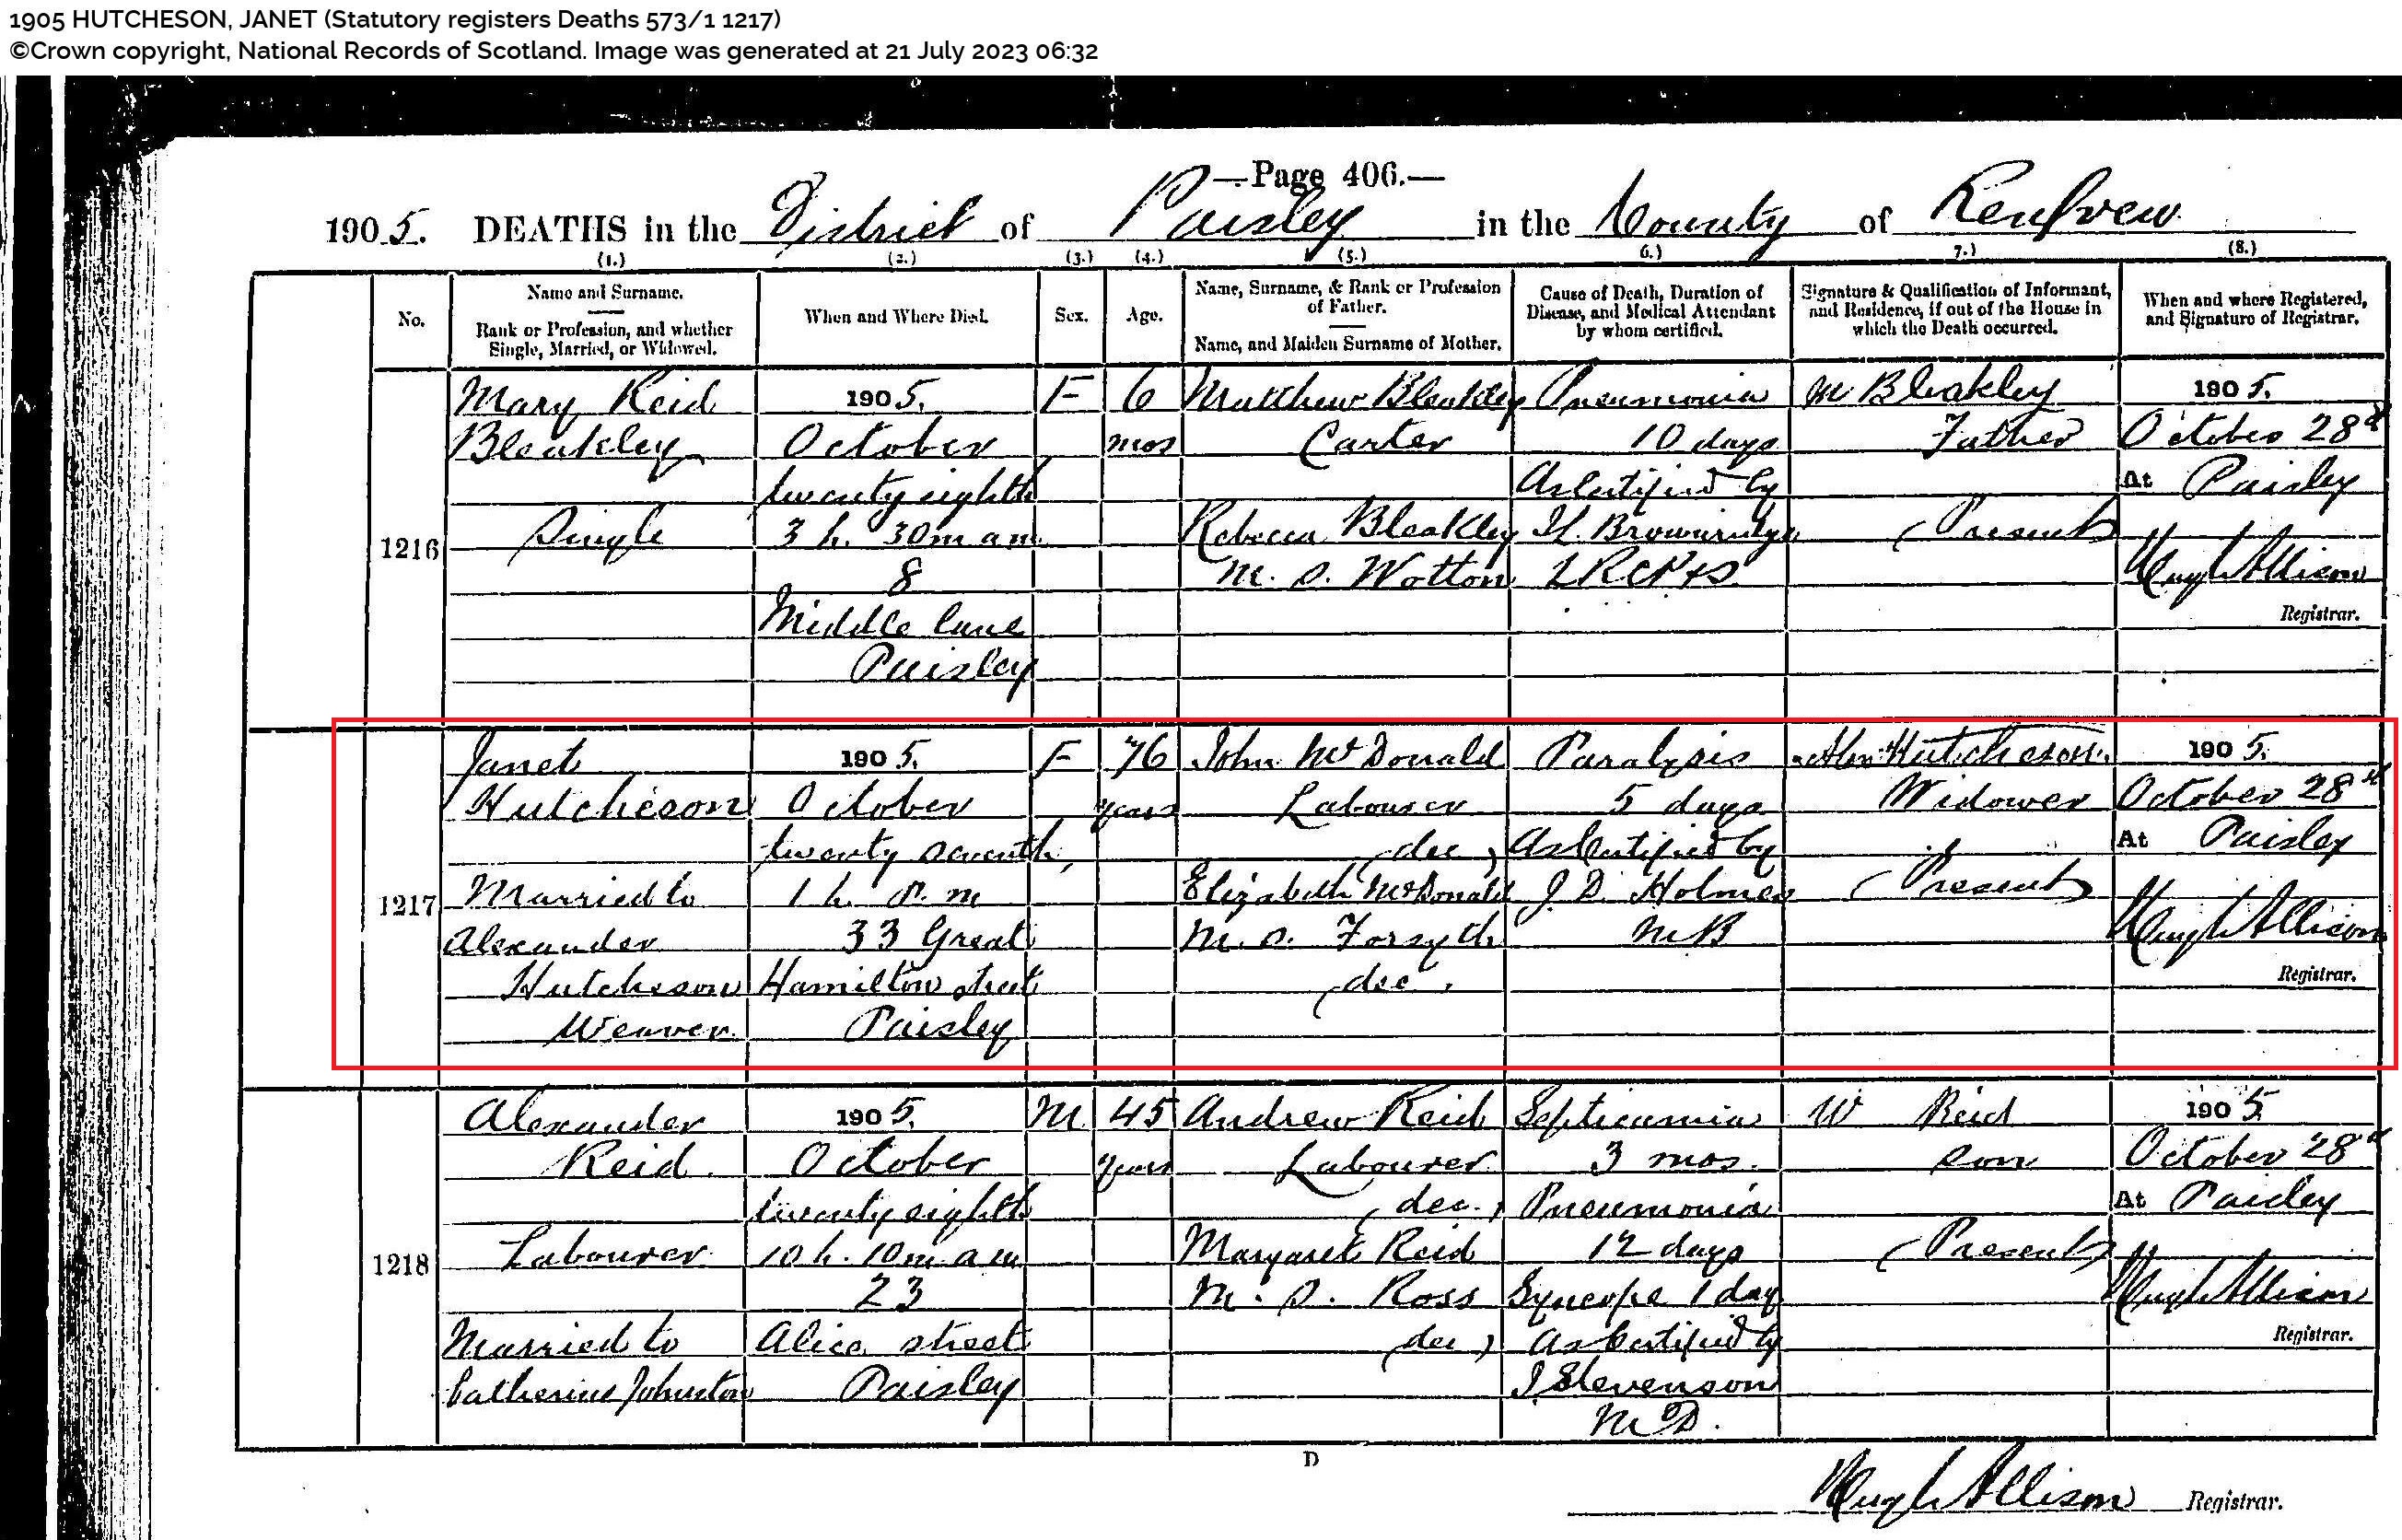 1905 HUTCHESON, JANET (Statutory registers Deaths 573/1 1217)
©Crown copyright, National Records of Scotland. Image was generated at 21 July 2023 06:32
—Page 406.—
1905. DEATHS in the District of Paisley in the County of Renfrew
(1.) (2.) (3.) (4.) (5.) 6.) 7.) (8.)
No.
Name and Surname.
Rank or Profession, and whether
Single, Married, or Widowed.
When and Where Died.
Sex.
Age.
Name, Surname, & Rank or Profession
of Father.
Name, and Maiden Surname of Mother.
Cause of Death, Duration of
Disease, and Medical Attendant
by whom certified.
Signature & Qualification of Informant,
and Residence, if out of the House in
which the Death occurred.
When and where Registered,
and Signature of Registrar.
1216
Mary Reid
Bleakley
Single
1905.
October
twenty eighth
3 h. 30 m a m
8
Middle Lane
Paisley
F
6
mos
Matthew Bleakley
Carter
Rebecca Bleakley
M. S. Wotton
Pneumonia
10 days
As Certified by
H. Brownridge
LRCP&S
M Bleakley
Father
(Present)
1905.
October 28th
At Paisley
Hugh Allison
Registrar.
1217
Janet
Hutcheson
Married to
Alexander
Hutcheson
Weaver
1905.
October
twenty seventh
1 h. P. m
33 Great
Hamilton street
Paisley
F
76
years
John McDonald
Labourer
(dec)
Elizabeth McDonald
M. S. Forsyth
(dec)
Paralysis
5 days
As Certified by
J. D. Holmes
MB
Alex. Hutcheson.
Widower
(Present)
1905.
October 28th
At Paisley
Hugh Allison
Registrar.
1218
Alexander
Reid
Labourer
Married to
Catherine Johnston
1905.
October
twenty eighth
10 h. 10 m. a m
23
Alice street
Paisley
M
45
years
Andrew Reid
Labourer
(dec.)
Margaret Reid
M. S. Ross
(dec)
Septicaemia
3 mos.
Pneumonia
12 days
Syncope 1 day
As Certified by
J Stevenson
MD.
W Reid
Son
(Present)
1905
October 28th
At Paisley
Hugh Allison
Registrar.
D
Hugh Allison Registrar.